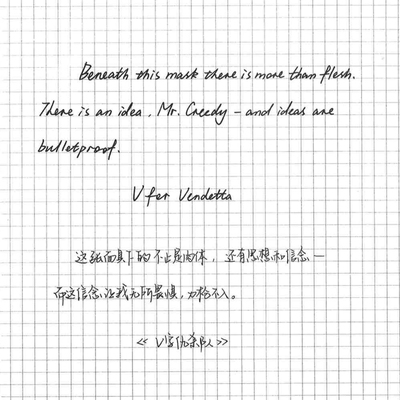 Beneath this mask there is more than flesh.
There is an idea, Mr. Creedy – and ideas are
bulletproof.
V for Vendetta
这张面具下的不止是肉体，还有思想和信念—
而这信念让我无所畏惧，刀枪不入。
《V字仇杀队》